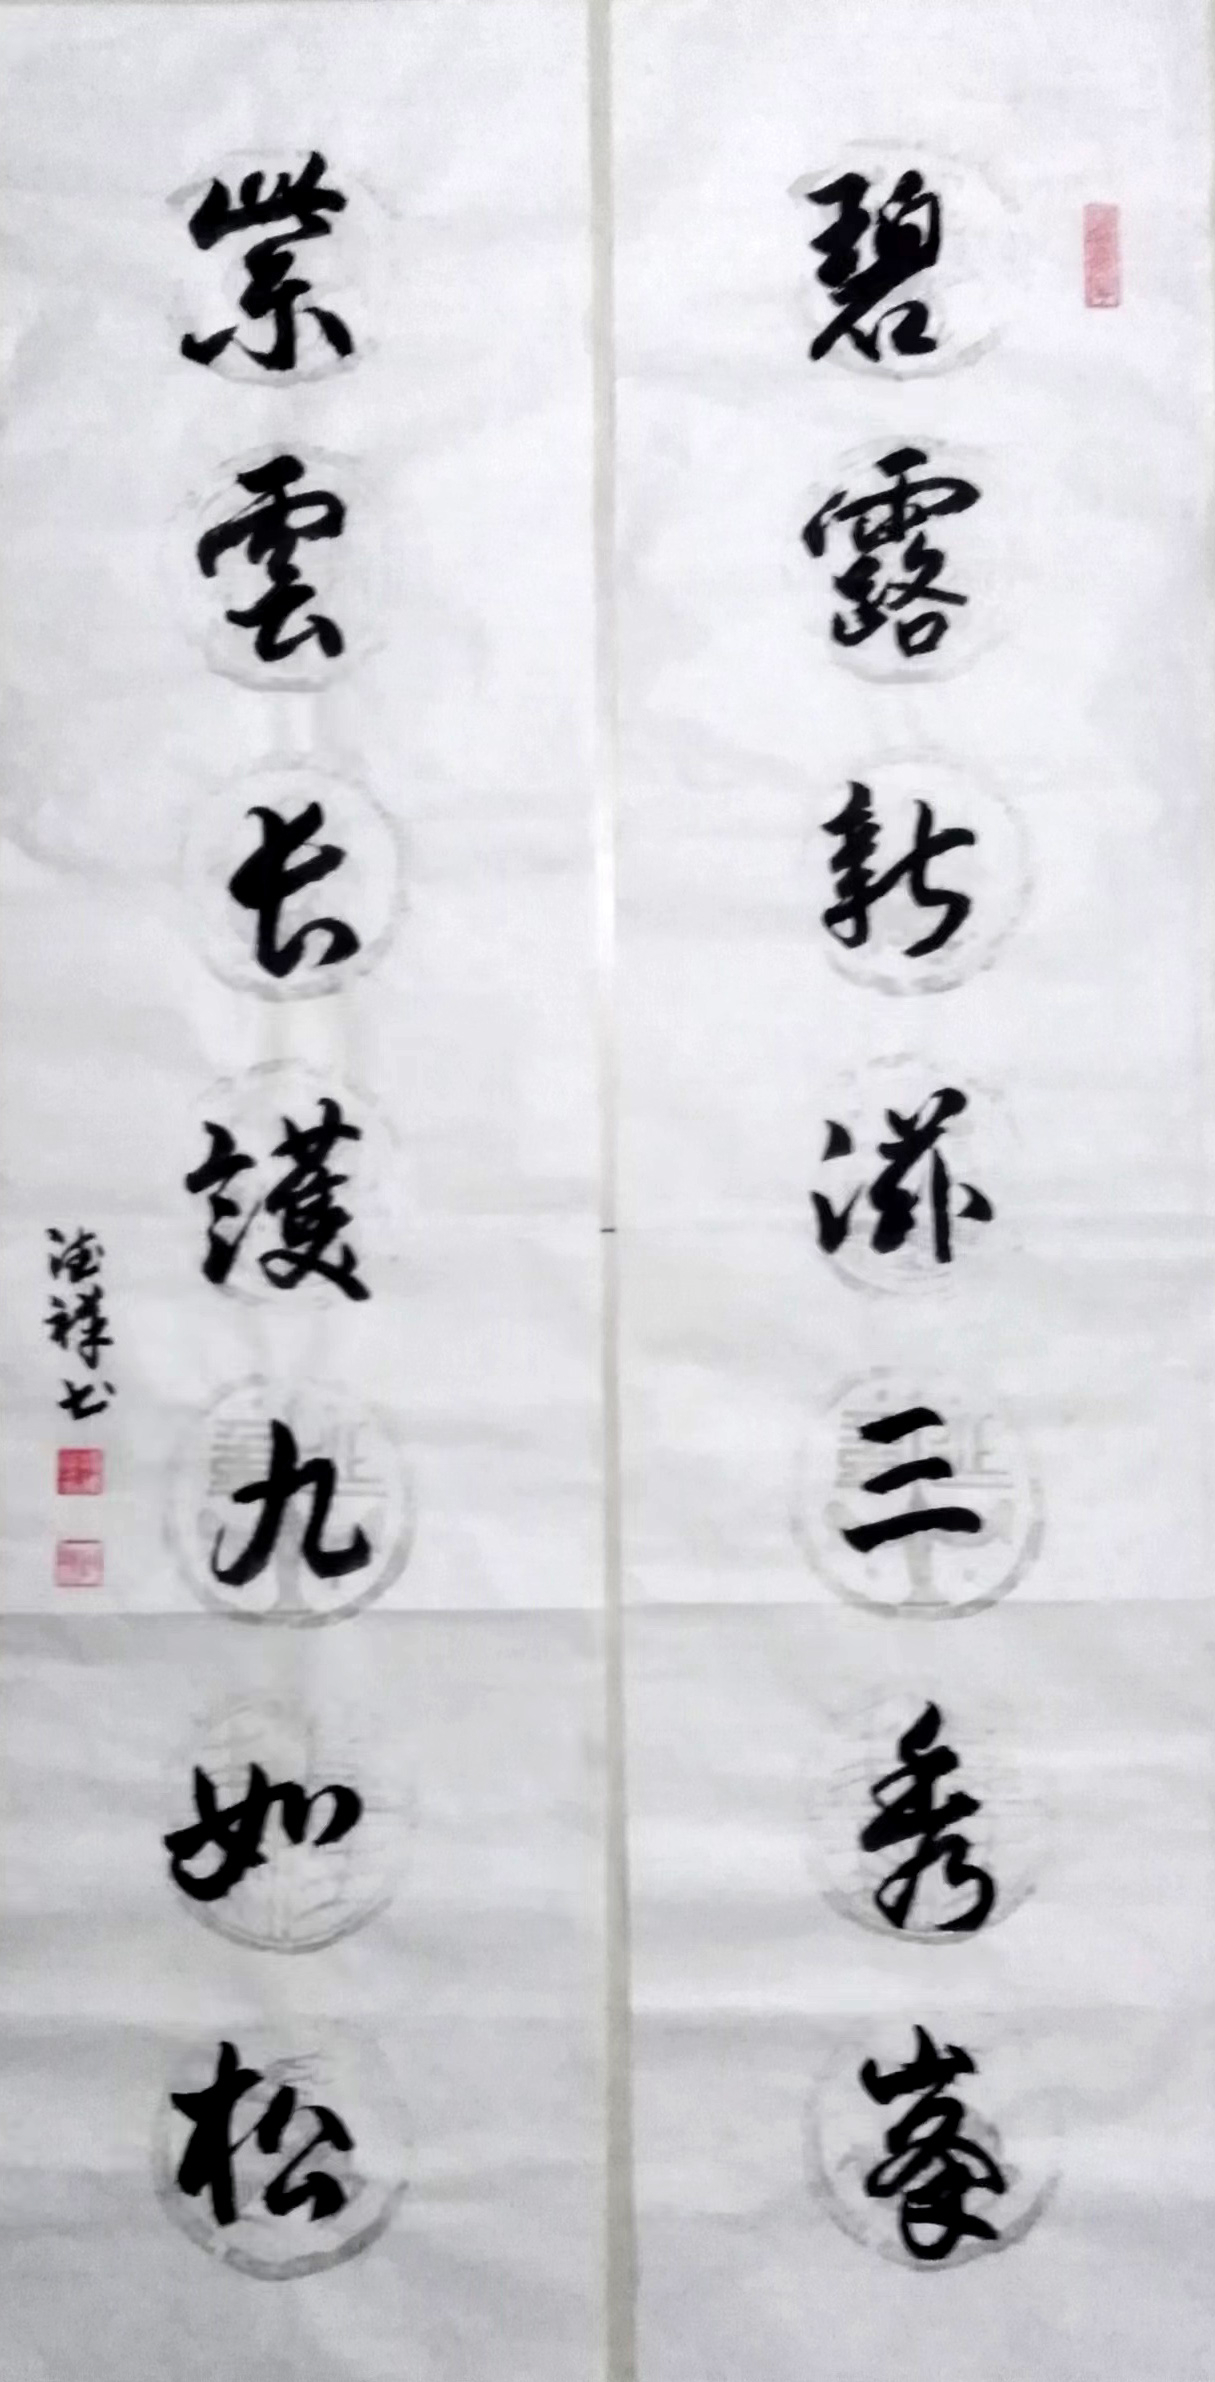 碧露新滋三秀峯
紫雲长護九如松
德祥书